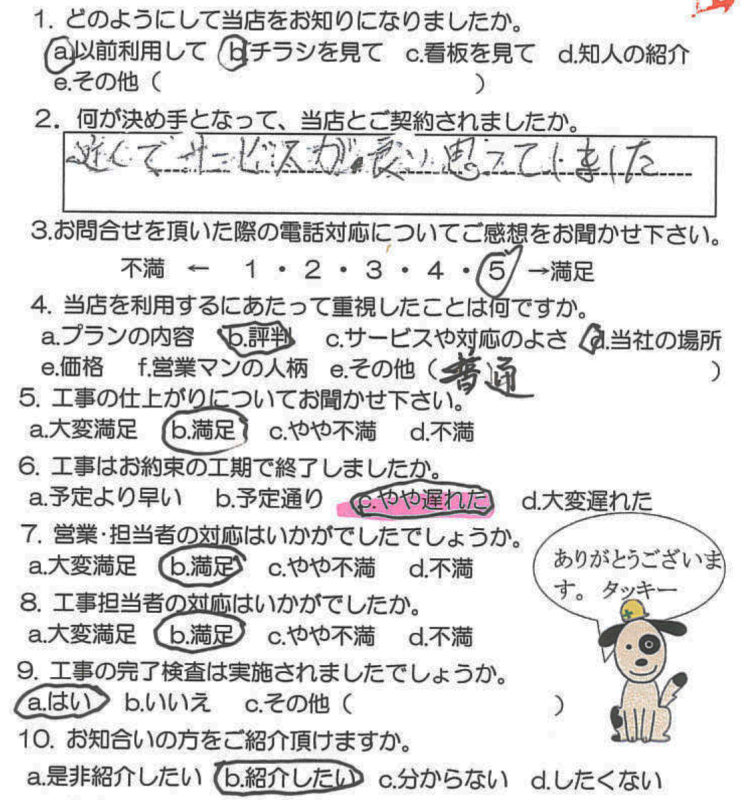 1. どのようにして当店をお知りになりましたか。
a.以前利用して b.チラシを見て c.看板を見て d.知人の紹介
e.その他（ ）
2. 何が決め手となって、当店とご契約されましたか。
近くてサービスが良い思ってしました
3.お問合せを頂いた際の電話対応についてご感想をお聞かせ下さい。
不満 ← 1・2・3・4・5 →満足
4. 当店を利用するにあたって重視したことは何ですか。
a.プランの内容 b.評判 c.サービスや対応のよさ d.当社の場所
e.価格 f.営業マンの人柄 e.その他（普通 ）
5. 工事の仕上がりについてお聞かせ下さい。
a.大変満足 b.満足 c.やや不満 d.不満
6. 工事はお約束の工期で終了しましたか。
a.予定より早い b.予定通り c.やや遅れた d.大変遅れた
7. 営業・担当者の対応はいかがでしたでしょうか。
a.大変満足 b.満足 c.やや不満 d.不満
8. 工事担当者の対応はいかがでしたか。
a.大変満足 b.満足 c.やや不満 d.不満
9. 工事の完了検査は実施されましたでしょうか。
a.はい b.いいえ c.その他（ ）
10. お知合いの方をご紹介頂けますか。
a.是非紹介したい b.紹介したい c.分からない d.したくない
ありがとうございま
す。 タッキー